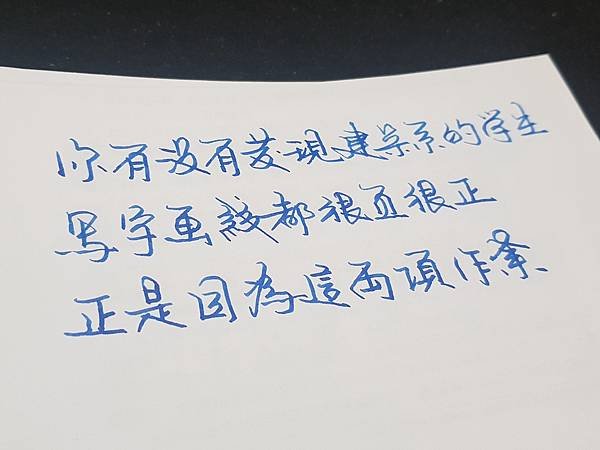 你有没有发現建築系的学生
写字画線都很直很正
正是因為這両項作業